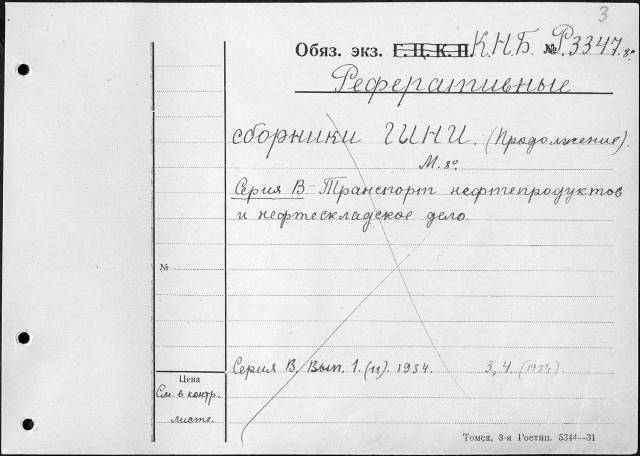 3
Обяз. экз. Г.Ц.К.П. К.Н.Б. № Р.3347.8º
Реферативные
сборники ГИНИ. (Продолжение).
М. 8º
Серия В - Транспорт нефтепродуктов
и нефтескладское дело.
№
Серия В, Вып. 1. (11). 1934. 3, 4. (1934)
Цена
См. в контр.
листе.
Томск, 3-я Гостип. 5344—31